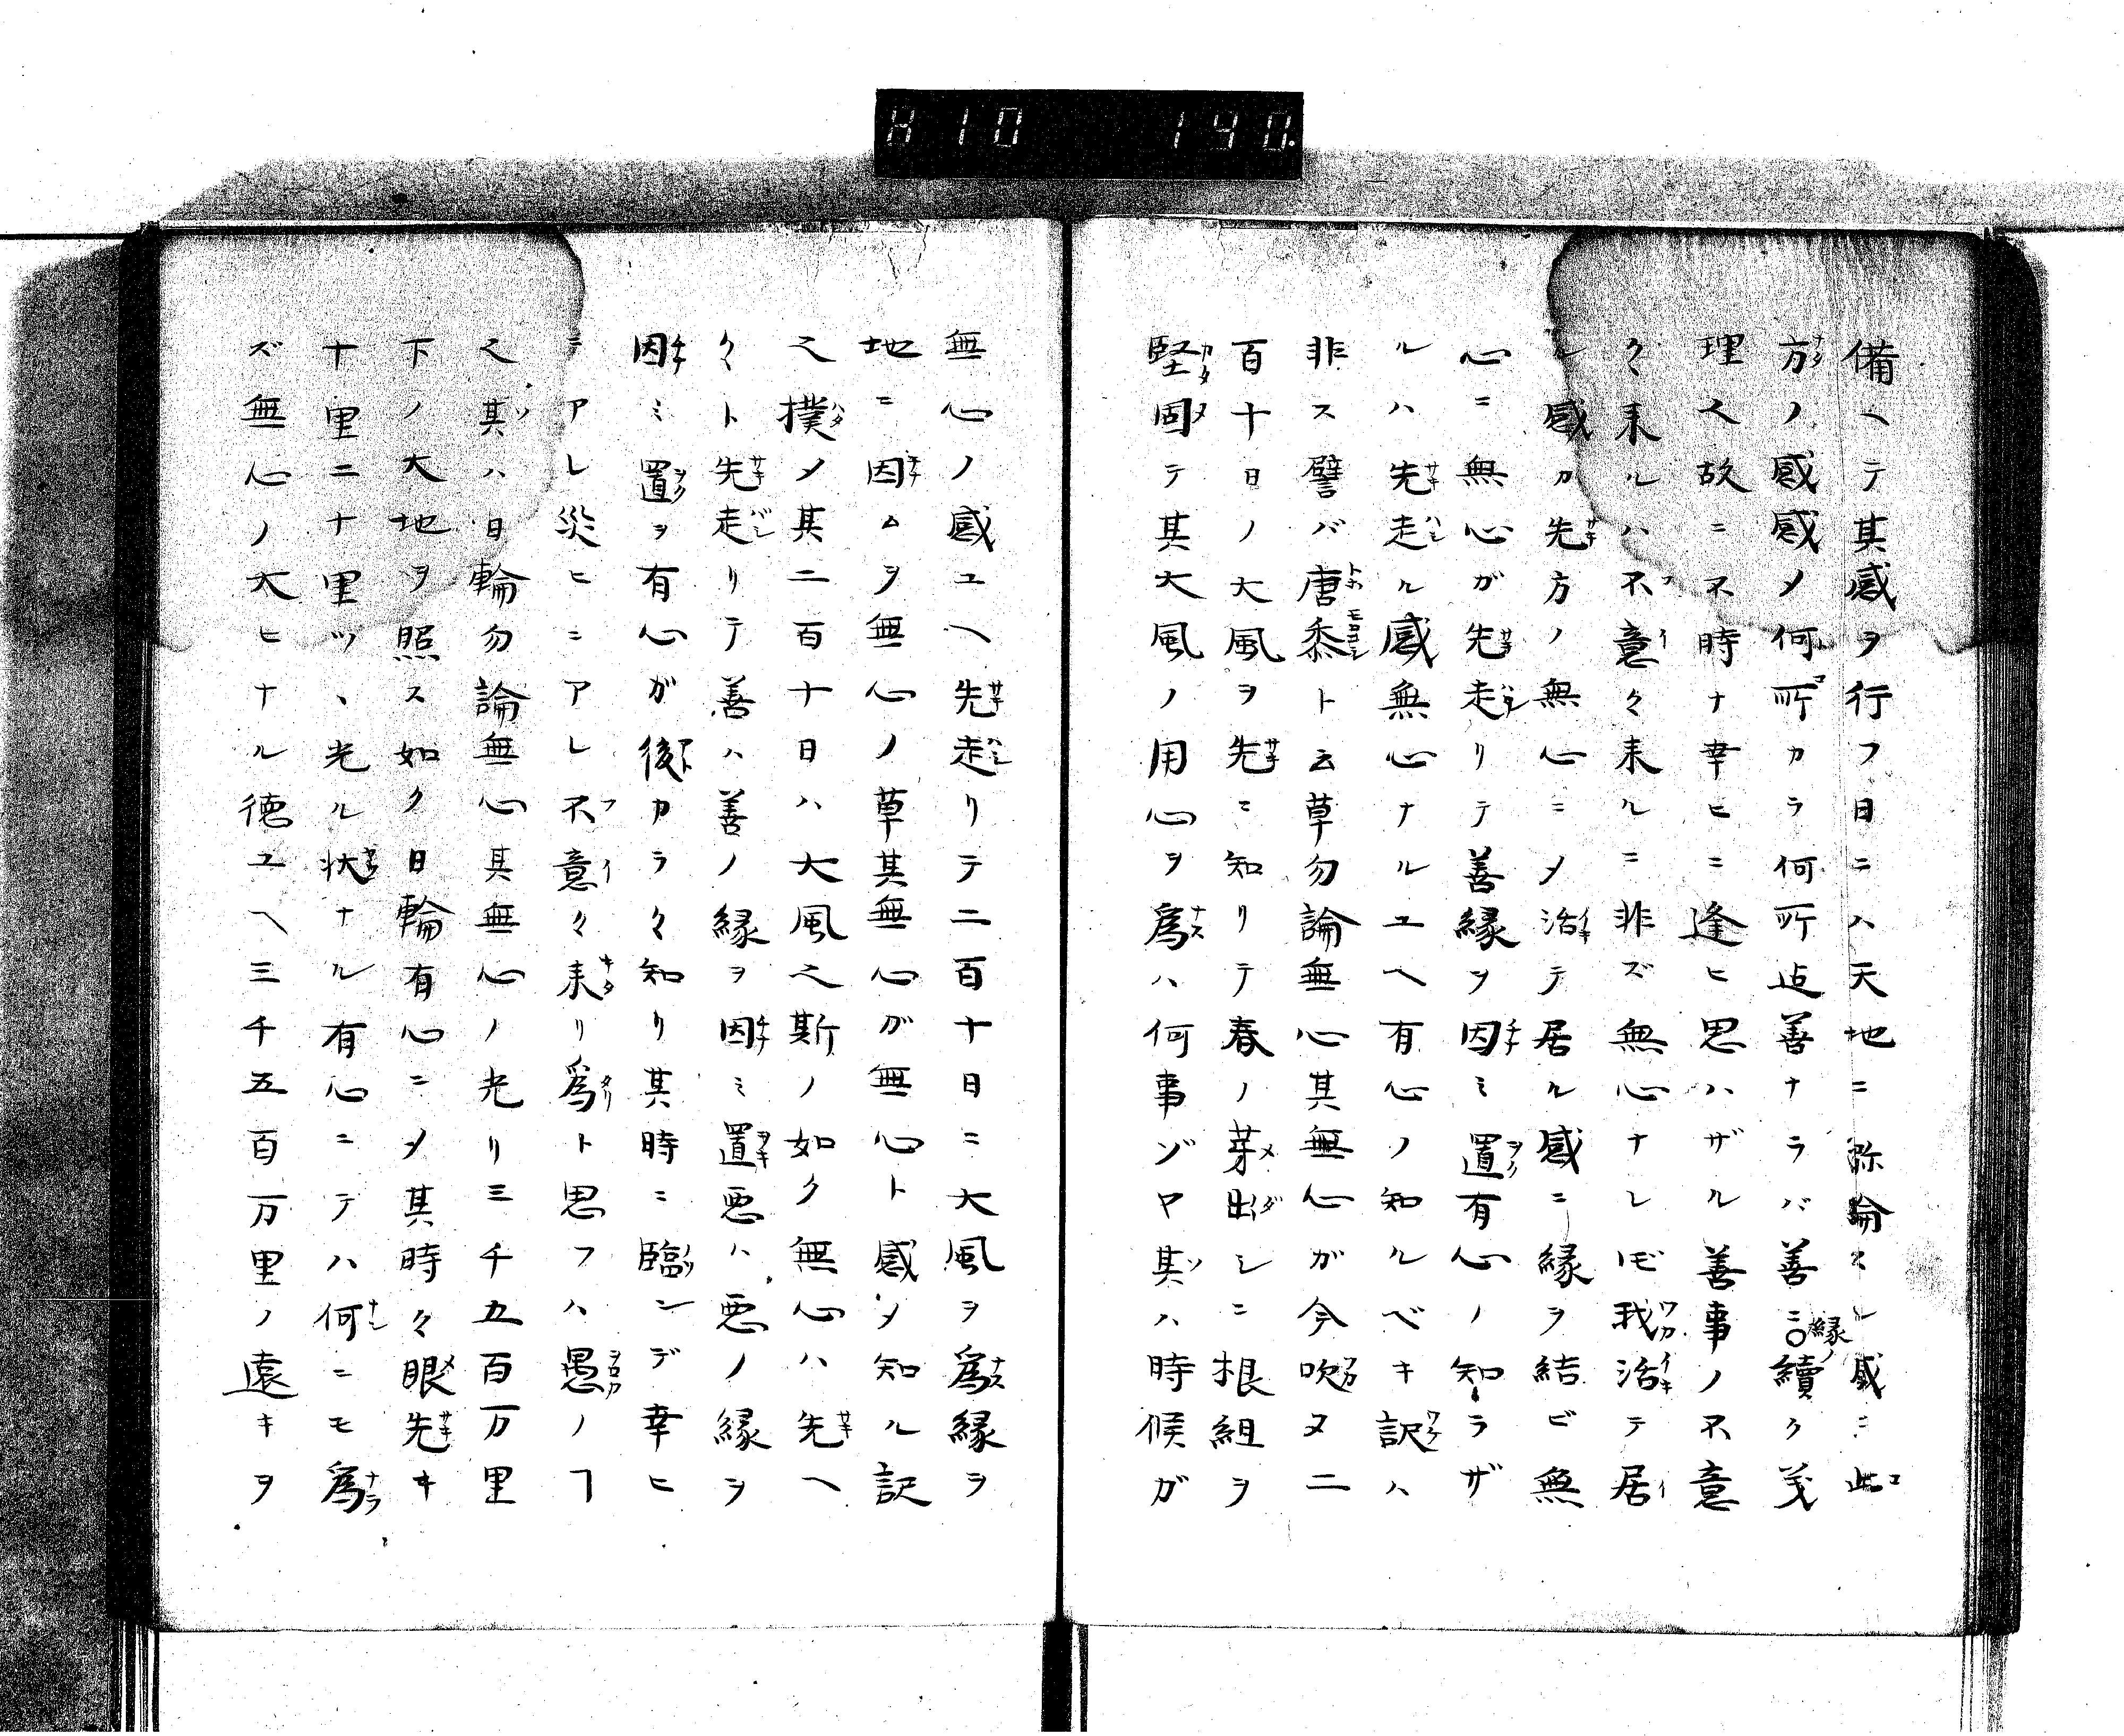 H10 190.
備ヘテ其感ヲ行フ日ニハ天地ニ弥綸スル感ニ此
方ノ感感〆何所カラ何所迠善ナラバ善ニ縁ノ續ク茂
理也故ニ不時ナ幸ヒニ逢ヒ思ハザル善事ノ不意
々来ルハ不意々来ルニ非ズ無心ナレ𪜈我活テ居
ル感カ先方ノ無心ニ〆活テ居ル感ニ縁ヲ結ビ無
心ニ無心ガ先走リテ善縁ヲ因ミ置有心ノ知ラザ
ルハ先走ル感無心ナルユヘ有心ノ知ルベキ訳ハ
非ス譬バ唐黍ト云草勿論無心其無心ガ今吹ヌ二
百十日ノ大風ヲ先ニ知リテ春ノ芽出シニ根組ヲ
堅固テ其大風ノ用心ヲ爲ハ何事ゾヤ其ハ時候ガ
無心ノ感ユヘ先走リテ二百十日ニ大風ヲ爲縁ヲ
地ニ因ムヲ無心ノ草其無心ガ無心ト感〆知ル訳
之撲〆其二百十日ハ大風之斯ノ如ク無心ハ先ヘ
々ト先走リテ善ハ善ノ縁ヲ因ミ置悪ハ悪ノ縁ヲ
因ミ置ヲ有心ガ後カラ々知リ其時ニ臨ンデ幸ヒ
テアレ災ヒニアレ不意々来リ爲ト思フハ愚ノヿ
之其ハ日輪勿論無心其無心ノ光リ三千五百万里
下ノ大地ヲ照ス如ク日輪有心ニ〆其時々眼先キ
十里二十里ツヽ光ル状ナル有心ニテハ何ニモ爲
ズ無心ノ大ヒナル徳ユヘ三千五百万里ノ遠キヲ